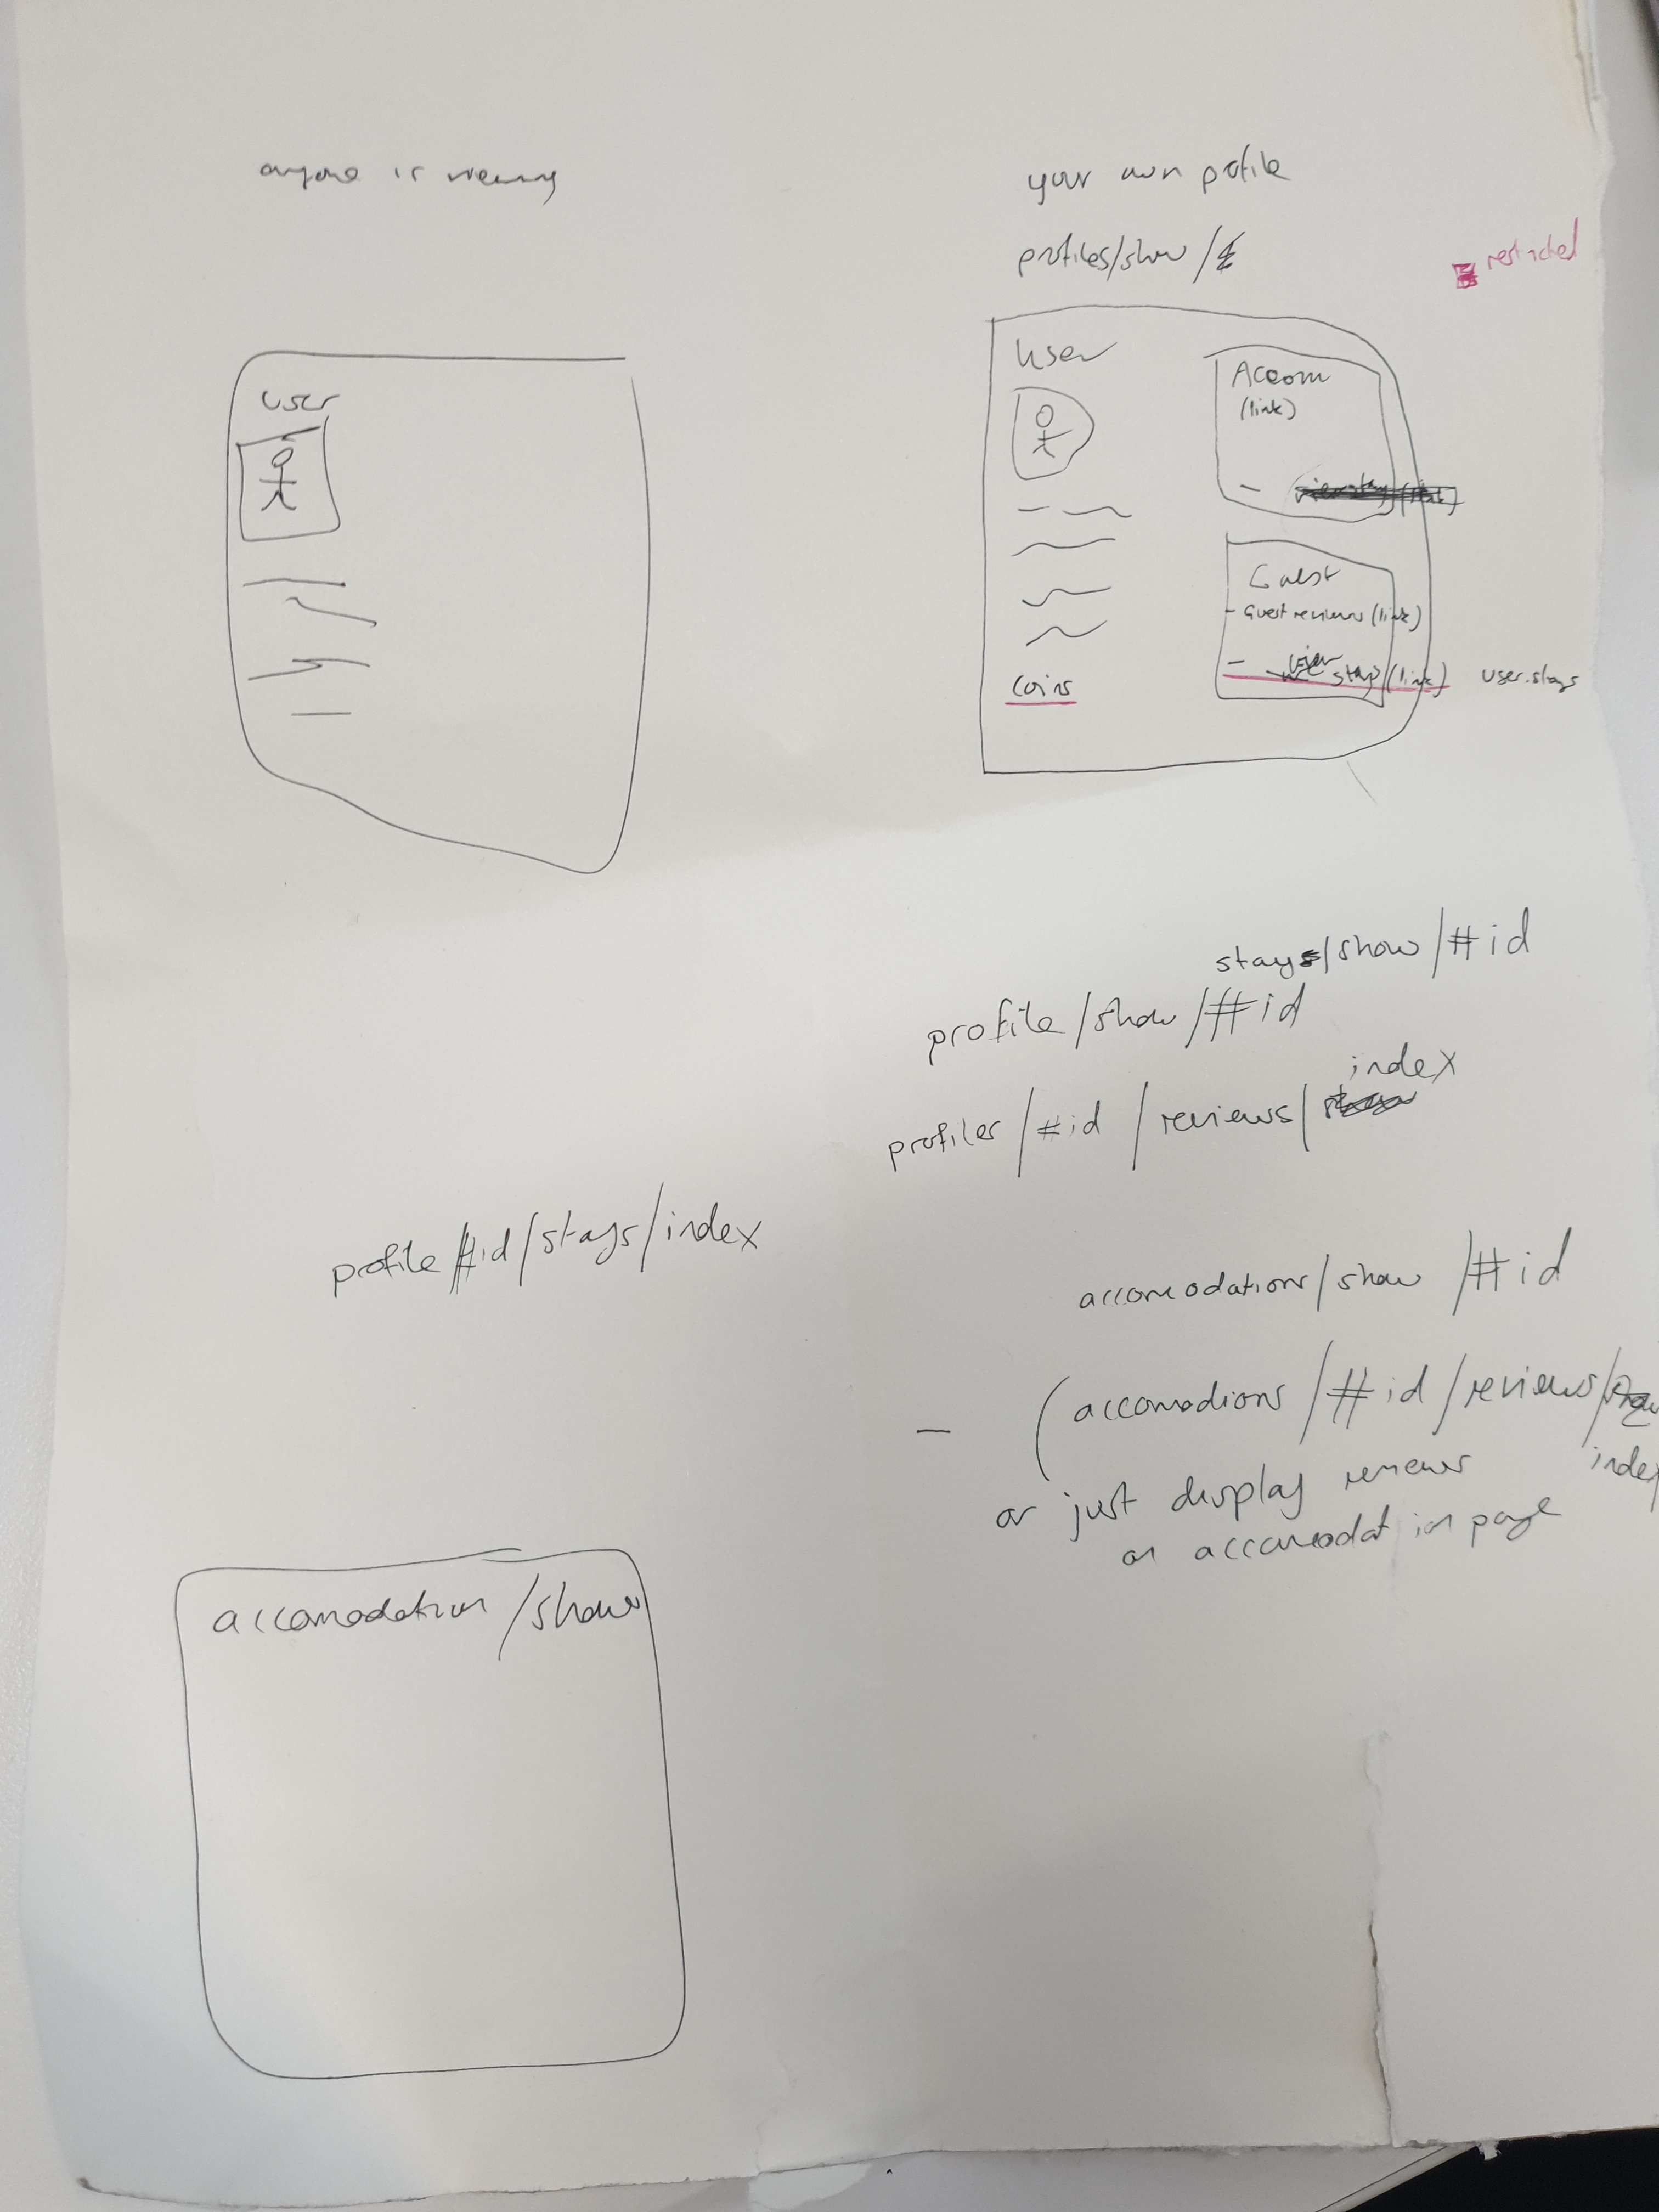 anyone is viewing
user
your own profile
profiles/show/
restricted
User
coins
Accom
(link)
Guest
- Guest reviews (link)
- view stay (link)
user.stays
stays/show/#id
profile/show/#id
index
profiles/#id/reviews/
profile/#id/stays/index
accomodations/show/#id
- (accomodions/#id/reviews/
index
or just display reviews
on accomodation page
accomodation/show